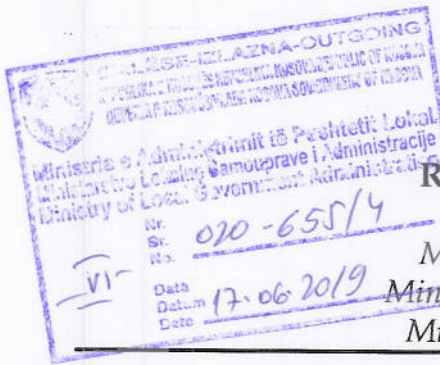 DALËSE-IZLAZNA-OUTGOING
Ministria e Administrimit të Pushtetit Lokal
Ministarstvo Lokalne Samouprave i Administracije
Ministry of Local Government Administration
R
Nr.
Br.
No.
020-655/4
M
-VI-
Data
Datum
Date
17.06.2019
Min
Mi